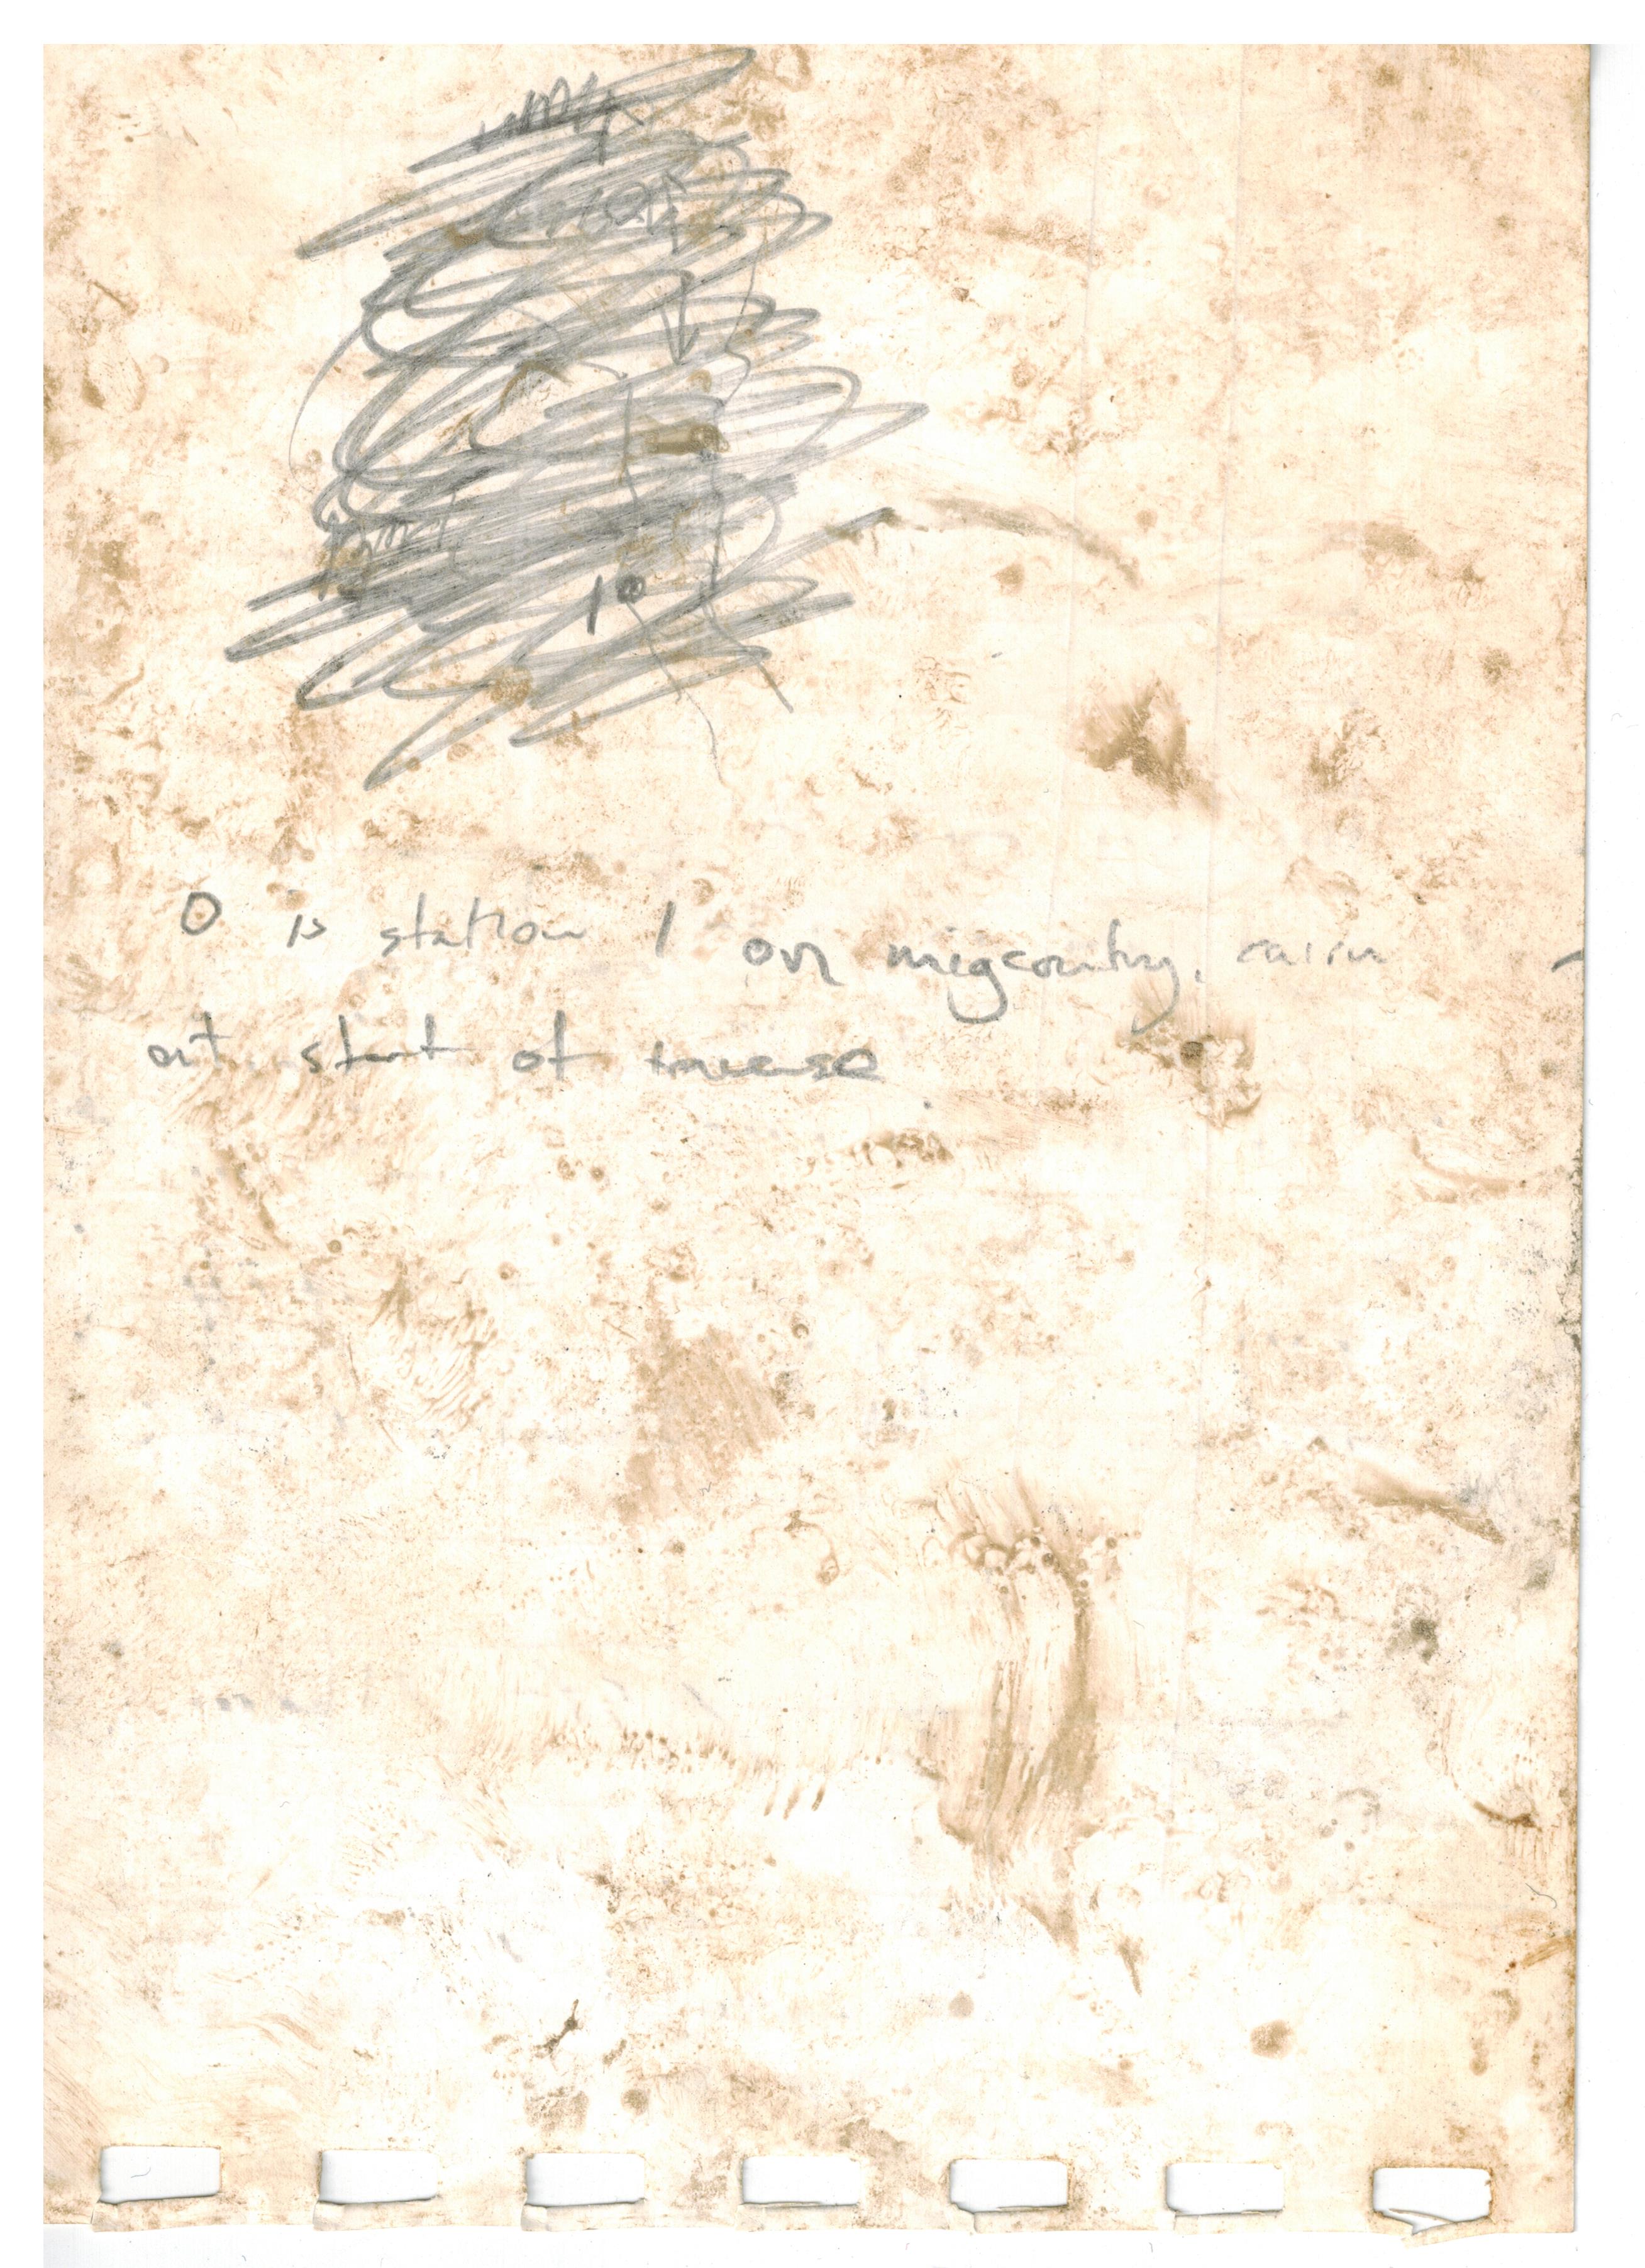 0 is station 1 on migcountry, cairn
at start of traverse